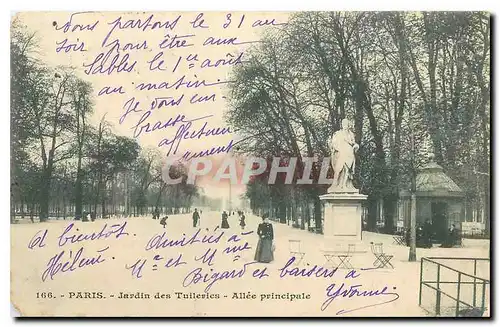 Nous partons le 31 au
soir pour être aux
Sables le 1er août
au matin.
je vous em-
brasse
affectueu
sement
à bientôt
Hélène.
Amitiés à
Mr et Mme
Bigard et baisers à
Yvonne
CPARAMA
166. - PARIS. - Jardin des Tuileries - Allée principale